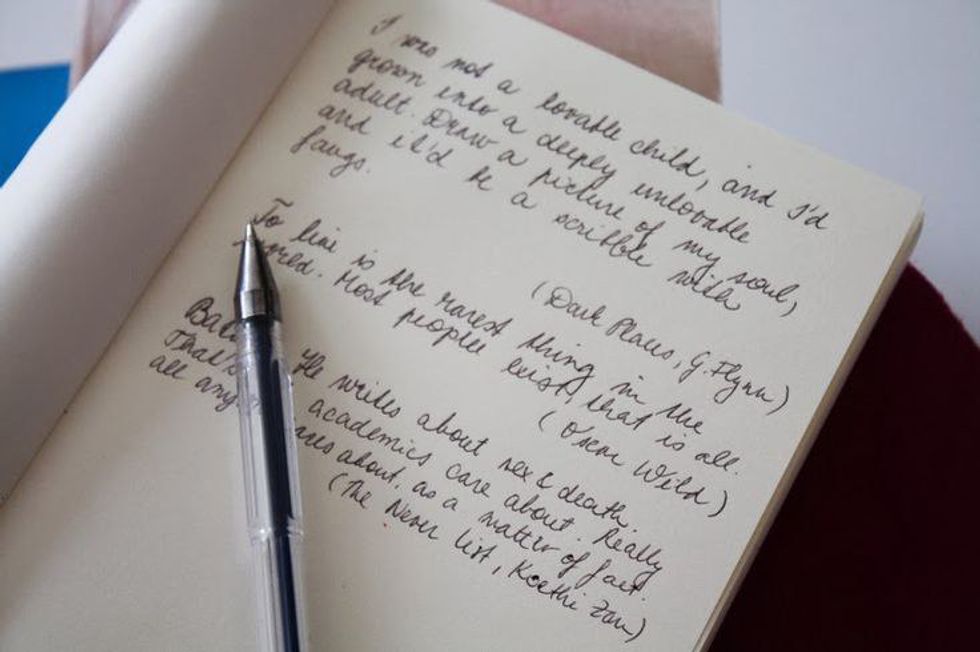 I was not a lovable child, and I'd
grown into a deeply unlovable
adult. Draw a picture of my soul,
and it'd be a scribble with
fangs.
(Dark Places, G. Flynn)
To live is the rarest thing in the
world. Most people exist, that is all.
(Oscar Wild)
He writes about sex & death.
That's academics care about. Really
all about, as a matter of fact.
(The Never List, Koethi Zan)